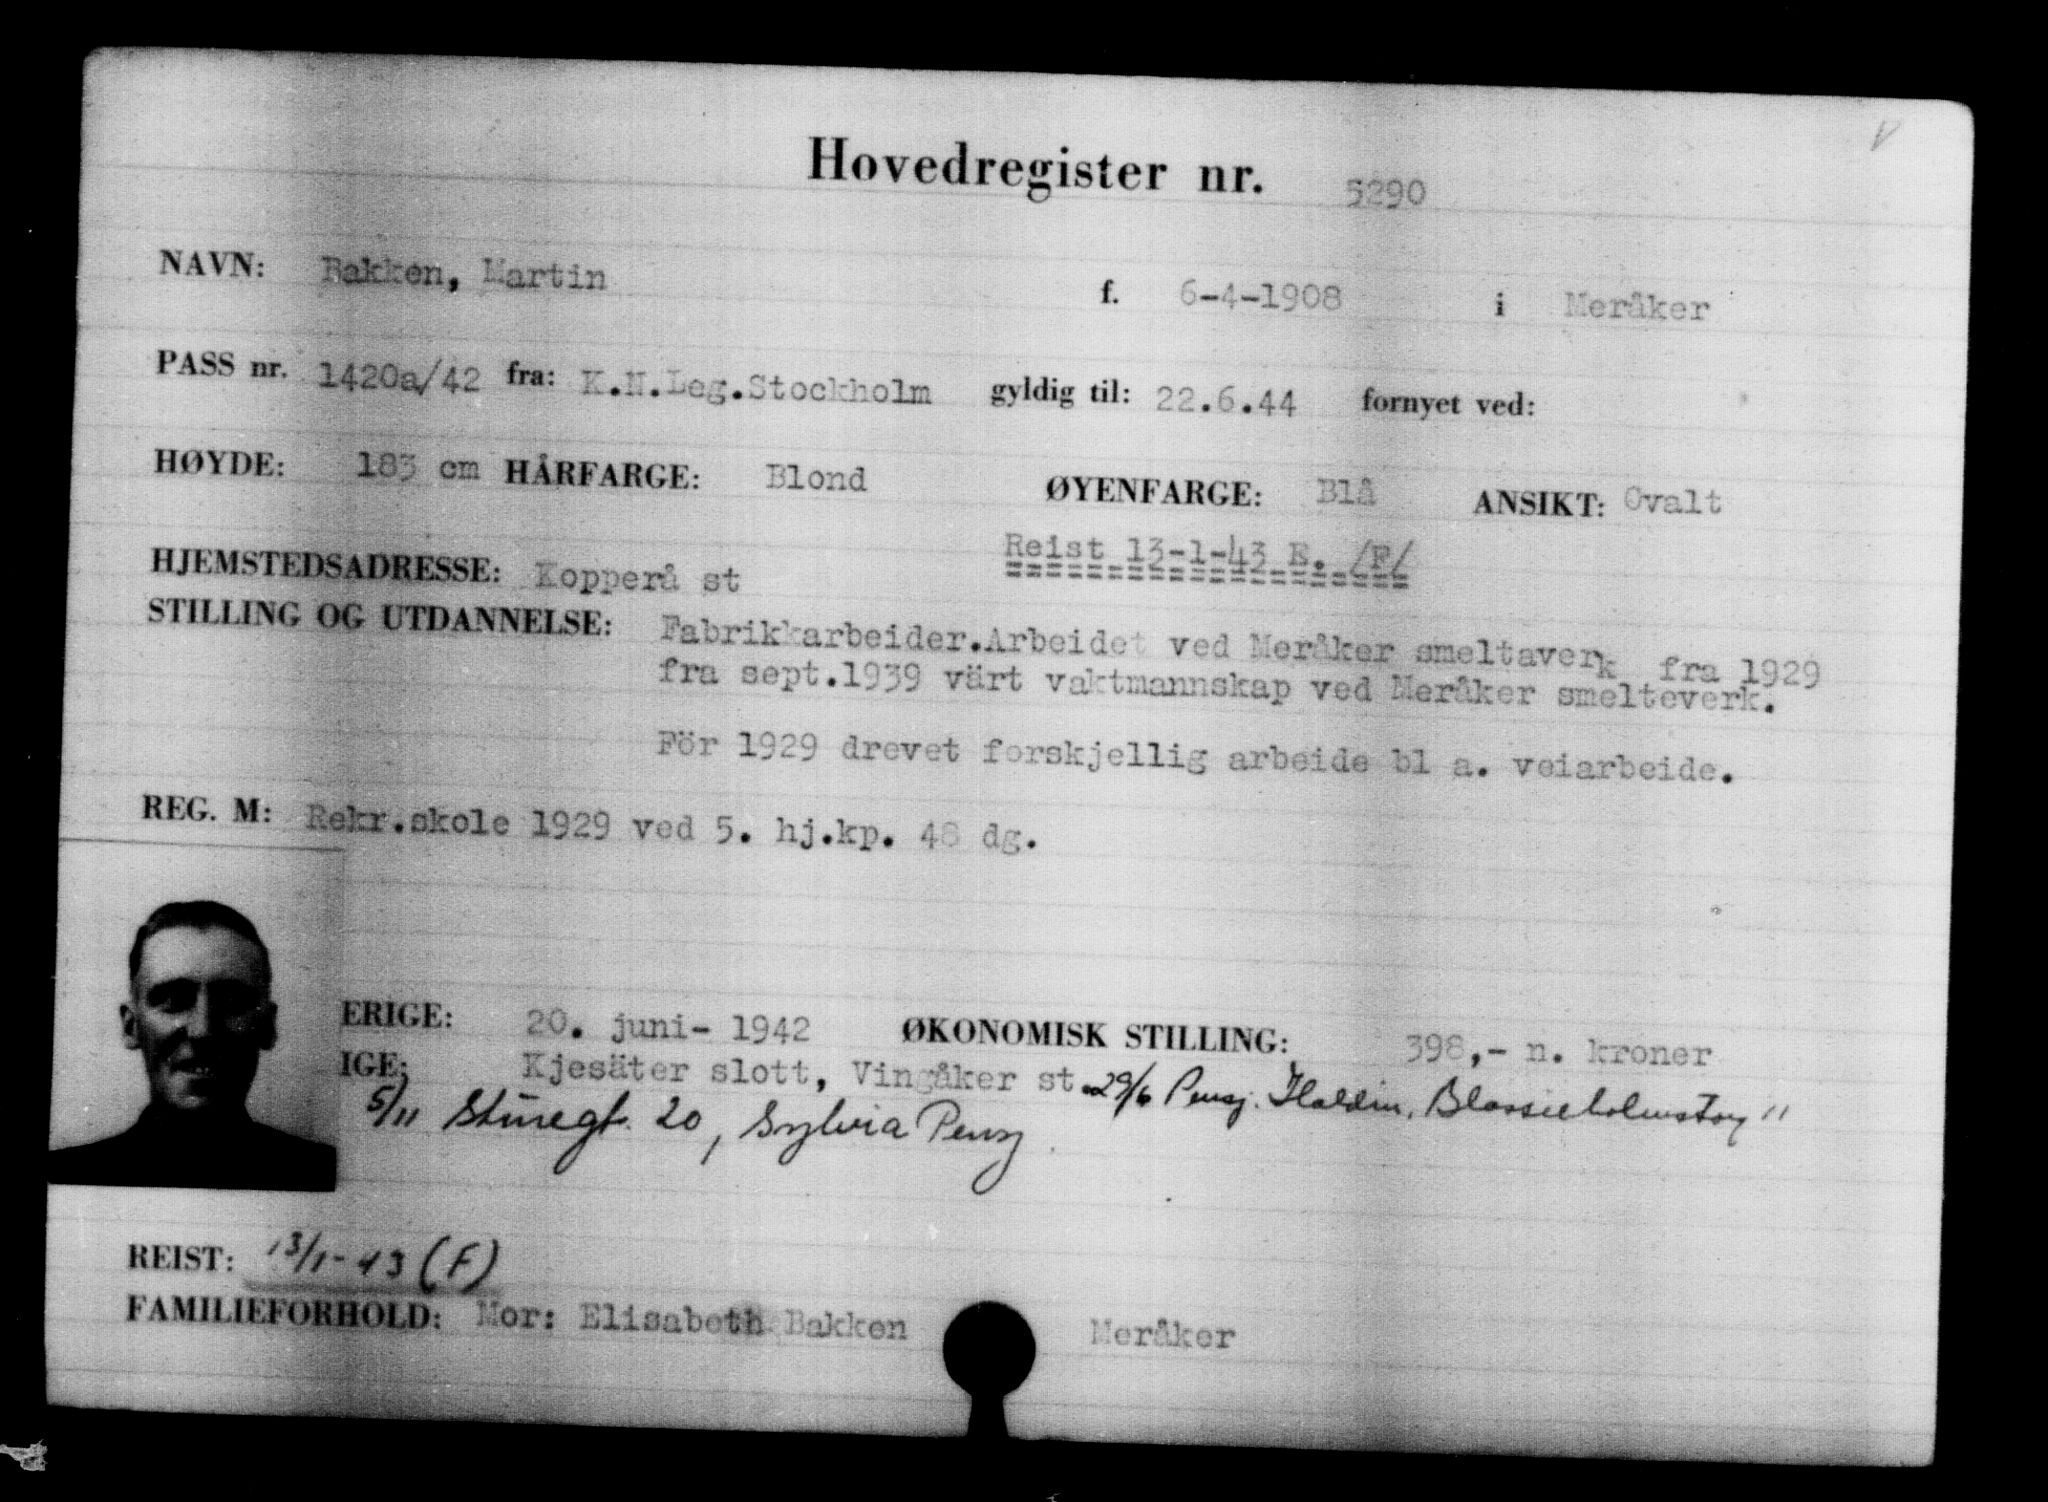 Hovedregister nr. 5290
NAVN: Bakken, Martin f. 6-4-1908 i Meråker
PASS nr. 1420a/42 fra: K.N.Leg.Stockholm gyldig til: 22.6.44 fornyet ved:
HØYDE: 183 cm HÅRFARGE: Blond ØYENFARGE: Blå ANSIKT: Ovalt
Reist 13-1-43 E. /F/
HJEMSTEDSADRESSE: Kopperå st
STILLING OG UTDANNELSE: Fabrikkarbeider.Arbeidet ved Meråker smeltaverk fra 1929
fra sept.1939 värt vaktmannskap ved Meråker smelteverk.
För 1929 drevet forskjellig arbeide bl a. veiarbeide.
REG. M: Rekr.skole 1929 ved 5. hj.kp. 48 dg.
ERIGE: 20. juni- 1942 ØKONOMISK STILLING: 398,- n. kroner
IGE: Kjesäter slott, Vingåker st. 29/6 Pensj.
5/11 Sturegt. 20, Sylvia Pensj
REIST: 13/1-43 (F)
FAMILIEFORHOLD: Mor: Elisabeth Bakken Meråker